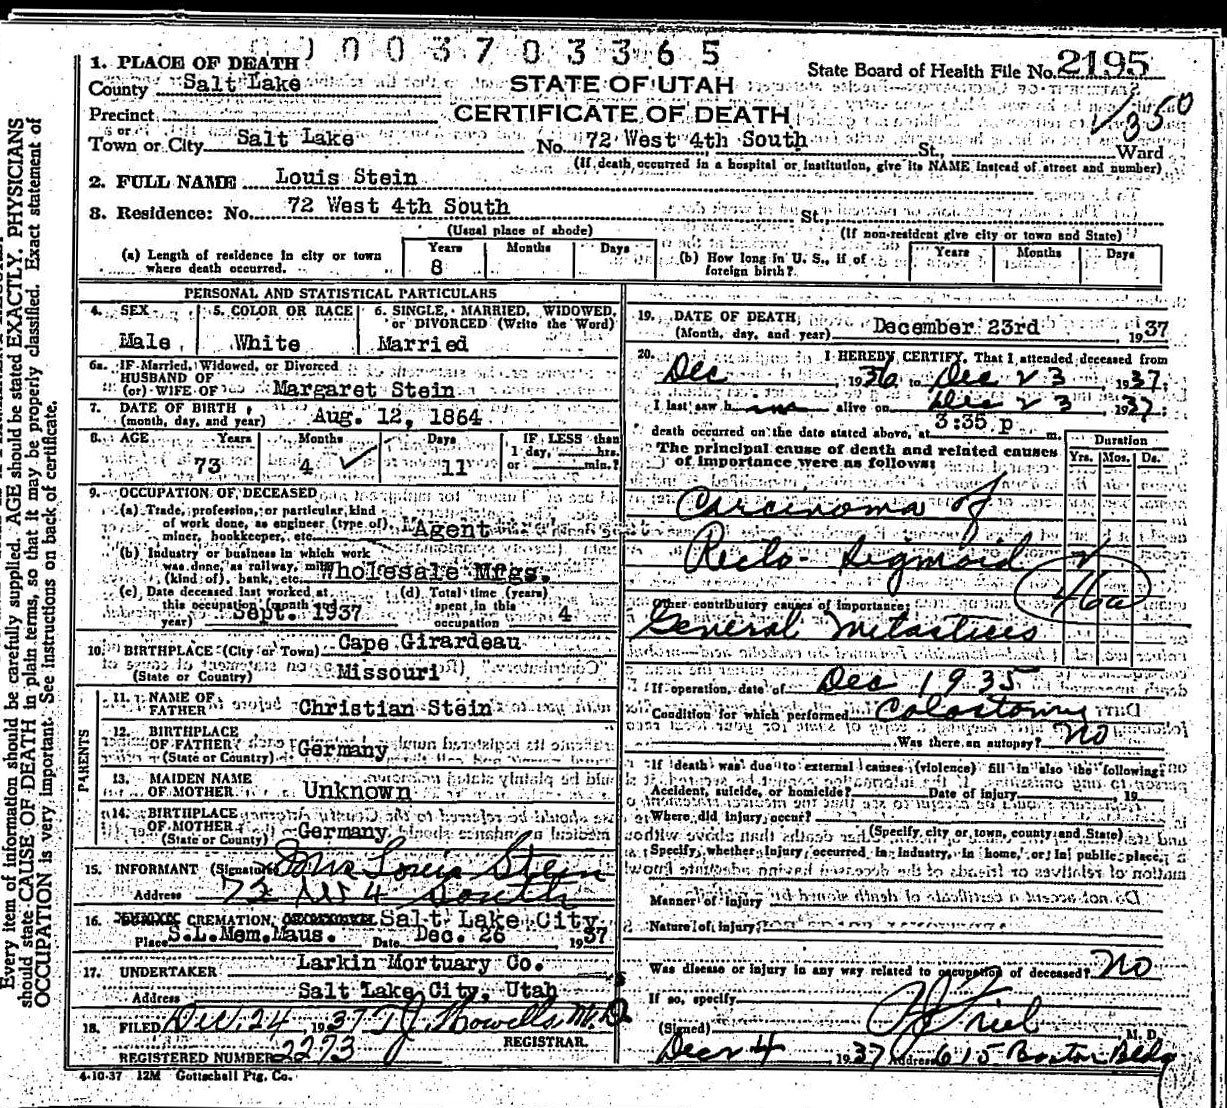 0003703365
1. PLACE OF DEATH
County Salt Lake
STATE OF UTAH
State Board of Health File No. 2195
Precinct
CERTIFICATE OF DEATH
V350
or
Town or City Salt Lake No. 72 West 4th South St., Ward
(If death occurred in a hospital or institution, give its NAME instead of street and number)
2. FULL NAME Louis Stein
3. Residence: No. 72 West 4th South St.,
(Usual place of abode) (If non-resident give city or town and State)
(a) Length of residence in city or town where death occurred. Years 8 Months Days
(b) How long in U. S., if of foreign birth? Years Months Days
PERSONAL AND STATISTICAL PARTICULARS
4. SEX Male
5. COLOR OR RACE White
6. SINGLE, MARRIED, WIDOWED, or DIVORCED (Write the Word) Married
6a. IF Married, Widowed, or Divorced
HUSBAND OF
(or) WIFE OF Margaret Stein
7. DATE OF BIRTH
(month, day, and year) Aug. 12, 1864
8. AGE Years 73 Months 4 Days 11
IF LESS than 1 day, hrs. or min.?
9. OCCUPATION OF DECEASED
(a) Trade, profession, or particular kind
of work done, as engineer (type of),
miner, bookkeeper, etc. Agent
(b) Industry or business in which work
was done, as railway, mill
(kind of), bank, etc. Wholesale Mfgs.
(c) Date deceased last worked at
this occupation (month and
year) Sept. 1937
(d) Total time (years)
spent in this
occupation 4
10. BIRTHPLACE (City or Town) Cape Girardeau
(State or Country) Missouri
PARENTS
11. NAME OF
FATHER Christian Stein
12. BIRTHPLACE
OF FATHER Germany
(State or Country)
13. MAIDEN NAME
OF MOTHER Unknown
14. BIRTHPLACE
OF MOTHER Germany
(State or Country)
15. INFORMANT (Signature) Mrs Louis Stein
Address 72 W 4 South
16. CREMATION, Salt Lake City
Place S.L.Mem.Maus. Date Dec. 26 1937
17. UNDERTAKER Larkin Mortuary Co.
Address Salt Lake City, Utah
18. FILED Dec. 24, 1937 T J Howells M.D.
REGISTRAR.
REGISTERED NUMBER 2273
4-10-37 12M Gottschall Ptg. Co.
19. DATE OF DEATH
(Month, day, and year) December 23rd, 1937
20. I HEREBY CERTIFY, That I attended deceased from
Dec 1936 to Dec 23, 1937.
I last saw him alive on Dec 23 1937.
3:35 p
death occurred on the date stated above, at m.
The principal cause of death and related causes
of importance were as follows:
Duration
Yrs. Mos. Ds.
Carcinoma of
Recto-Sigmoid
46a
Other contributory causes of importance:
General Metastices
If operation, date of Dec 1935
Condition for which performed Colostomy
Was there an autopsy? No
If death was due to external causes (violence) fill in also the following:
Accident, suicide, or homicide? Date of injury 19
Where did injury occur?
(Specify city or town, county and State)
Specify whether injury occurred in industry, in home, or in public place,
Manner of injury
Nature of injury
Was disease or injury in any way related to occupation of deceased? No
If so, specify
(Signed) Friel M. D.
Dec 24, 1937 Address 615 Boston Bldg
Every item of information should be carefully supplied. AGE should be stated EXACTLY. PHYSICIANS
should state CAUSE OF DEATH in plain terms, so that it may be properly classified. Exact statement of
OCCUPATION is very important. See instructions on back of certificate.